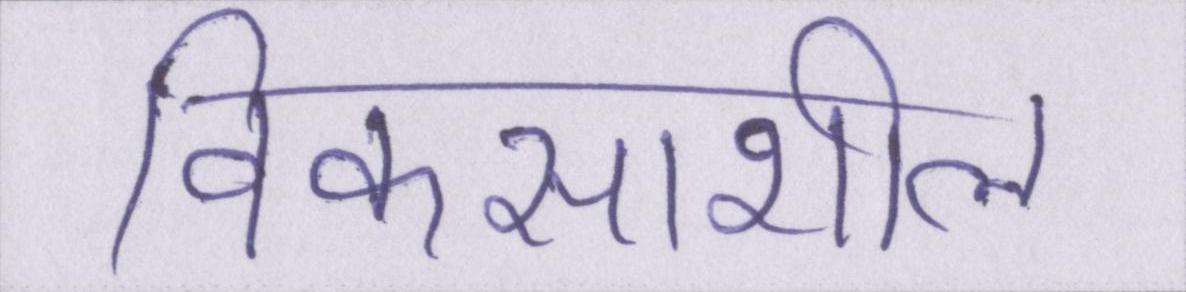 विकसाशील